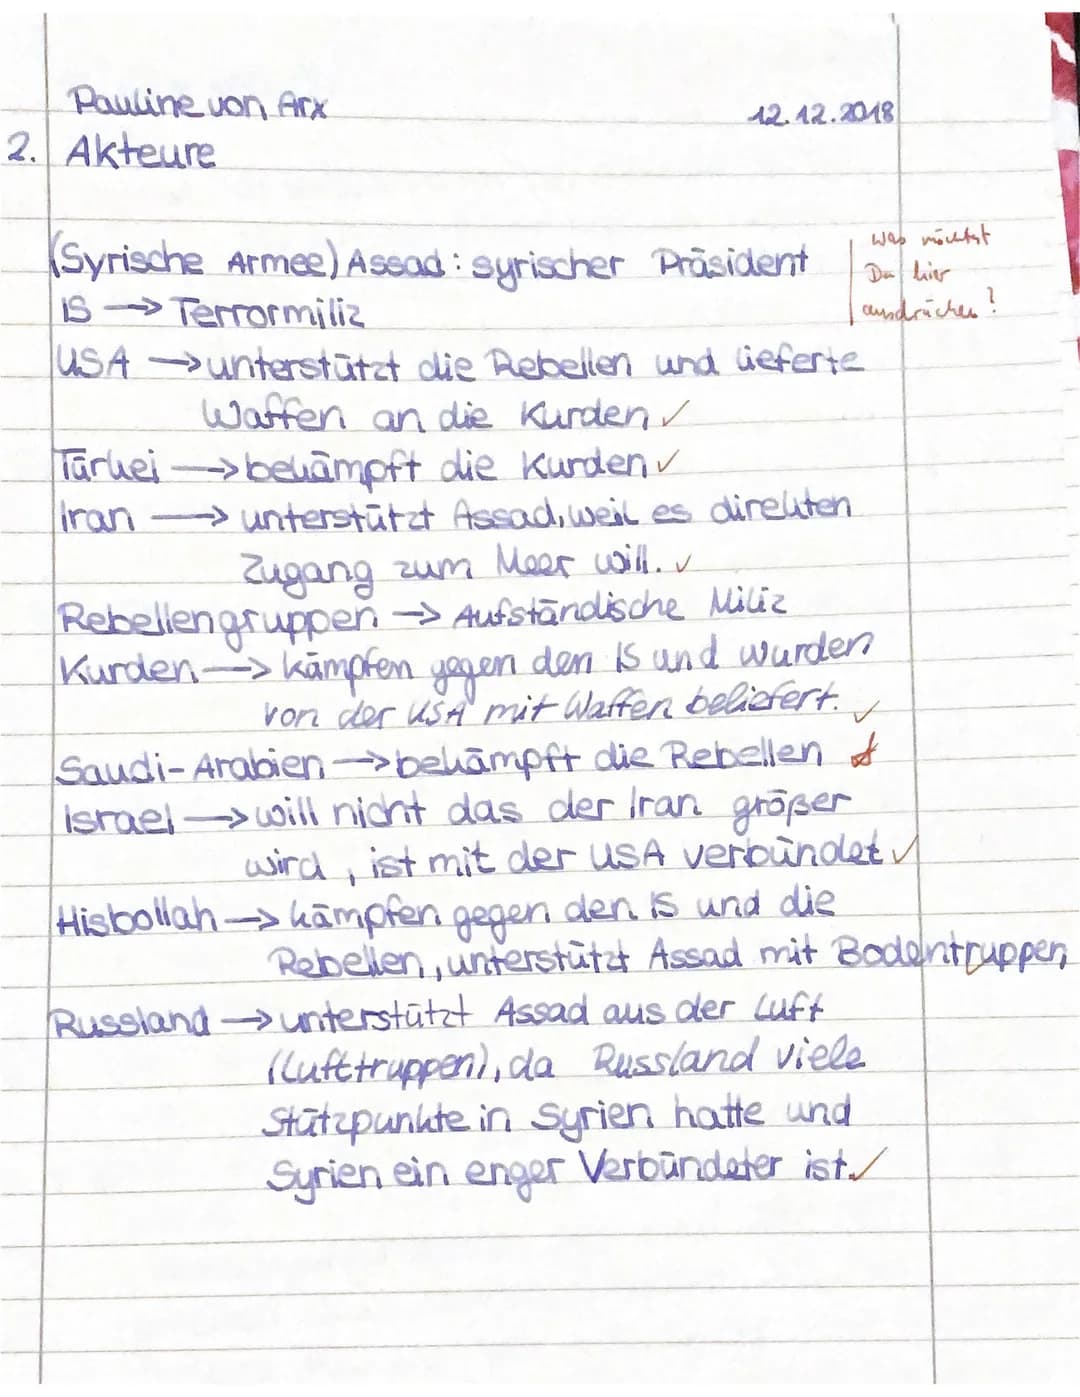 Pauline von Arx
12.12.2018
2. Akteure
(Syrische Armee) Assad: syrischer Präsident
was möchtest
Du hier
ausdrücken?
IS → Terrormiliz
USA → unterstützt die Rebellen und lieferte
Waffen an die Kurden ✓
Türkei → bekämpft die Kurden ✓
Iran → unterstützt Assad, weil es direkten
Zugang zum Meer will. ✓
Rebellengruppen → Aufständische Miliz
Kurden → kämpfen gegen den IS und wurden
von der USA mit Waffen beliefert. ✓
Saudi-Arabien → bekämpft die Rebellen
Israel → will nicht das der Iran größer
wird, ist mit der USA verbündet ✓
Hisbollah → kämpfen gegen den IS und die
Rebellen, unterstützt Assad mit Bodentruppen,
Russland → unterstützt Assad aus der Luft
(Lufttruppen), da Russland viele
Stützpunkte in Syrien hatte und
Syrien ein enger Verbündeter ist. ✓